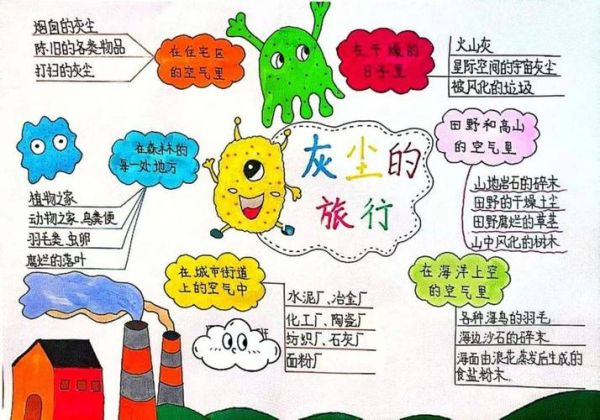 灰尘的
旅行
烟囱的灰尘
陈旧的各类物品
打扫的灰尘
在住宅区
的空气里
在干燥的
日子里
火山灰
星际空间的宇宙灰尘
被风化的垃圾
在森林的
每一处地方
植物之家
动物之家、鸟类便
羽毛类、虫卵
腐烂的落叶
田野和高山
的空气里
山地岩石的碎末
田野的干燥土尘
田野腐烂的草茎
山中风化的树木
在城市街道
上的空气中
水泥厂、冶金厂
化工厂、陶瓷厂
纺织厂、石灰厂
面粉厂
在海洋上空
的空气里
各种海鸟的羽毛
海边沙石的碎末
海面由浪花蒸发后生成的
食盐粉末.